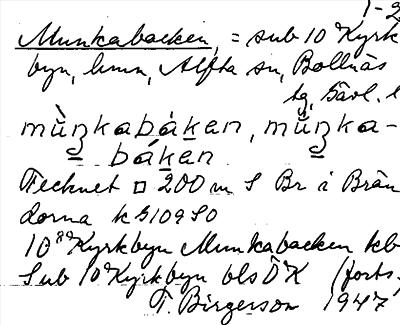 1-2
Munkabacken, = sub 10 Kyrk
byn, hmn, Alfta sn, Bollnäs
tg, Gävl. l
mùŋkabáken, mùŋka-
báken
Tecknet □ 200 m S Br i Brän
dorna k G 109 SO
10⁸⁹ Kyrkbyn Munkabacken kb
Sub 10 Kyrkbyn bls ÖK (forts.
T. Birgerson 1947